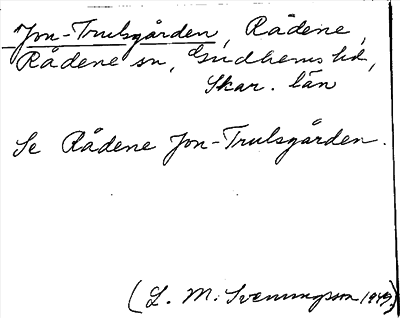 Jon-Trulsgården, Rådene,
Rådene sn, Gudhems hd,
Skar. län
Se Rådene Jon-Trulsgården.
(L. M. Svenungsson 1949.)